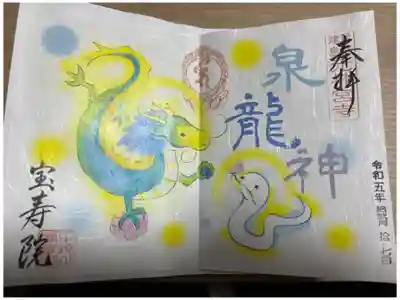 奉拝
泉
龍
神
令和五年
拾七日
宝寿院